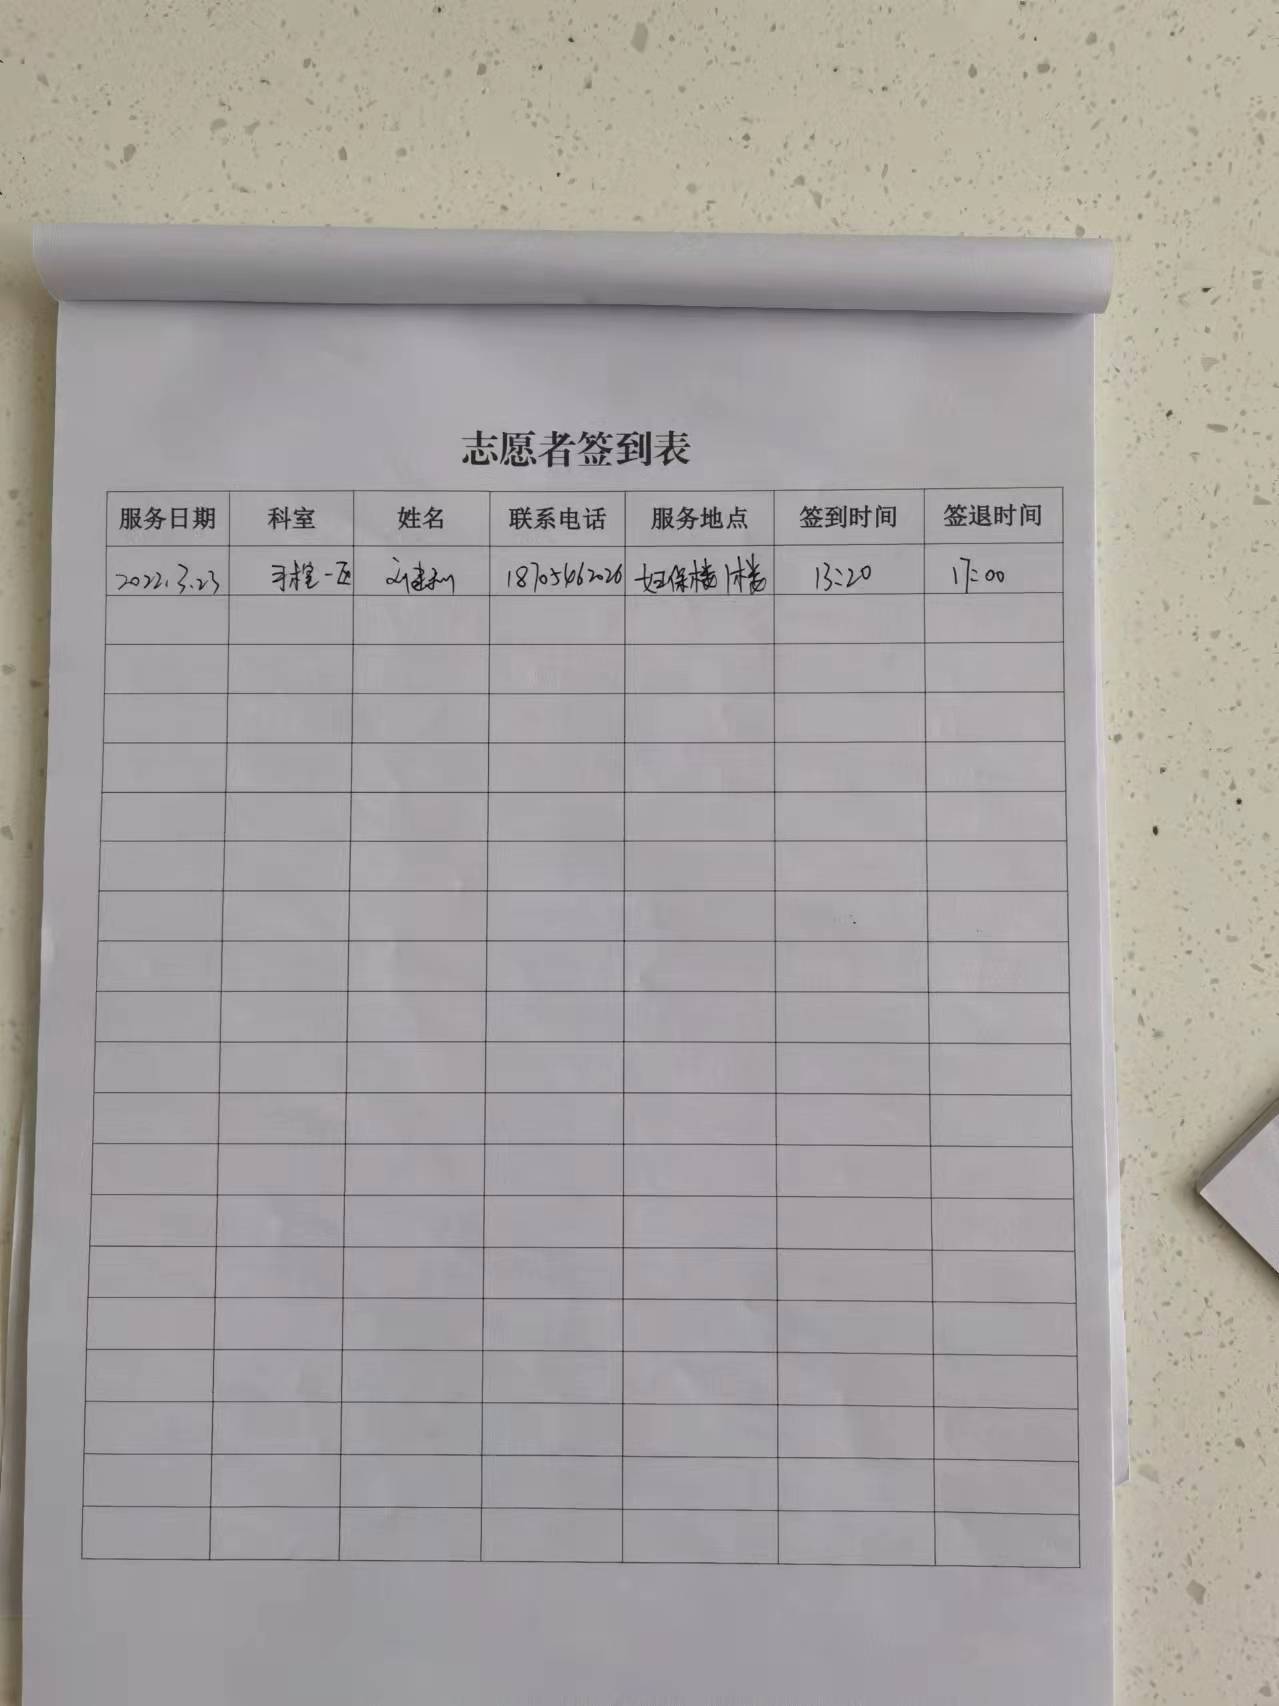 志愿者签到表
服务日期 科室 姓名 联系电话 服务地点 签到时间 签退时间
2022.3.23 手术室一区 刘建利 18705462026 妇保楼1楼 13:20 17:00